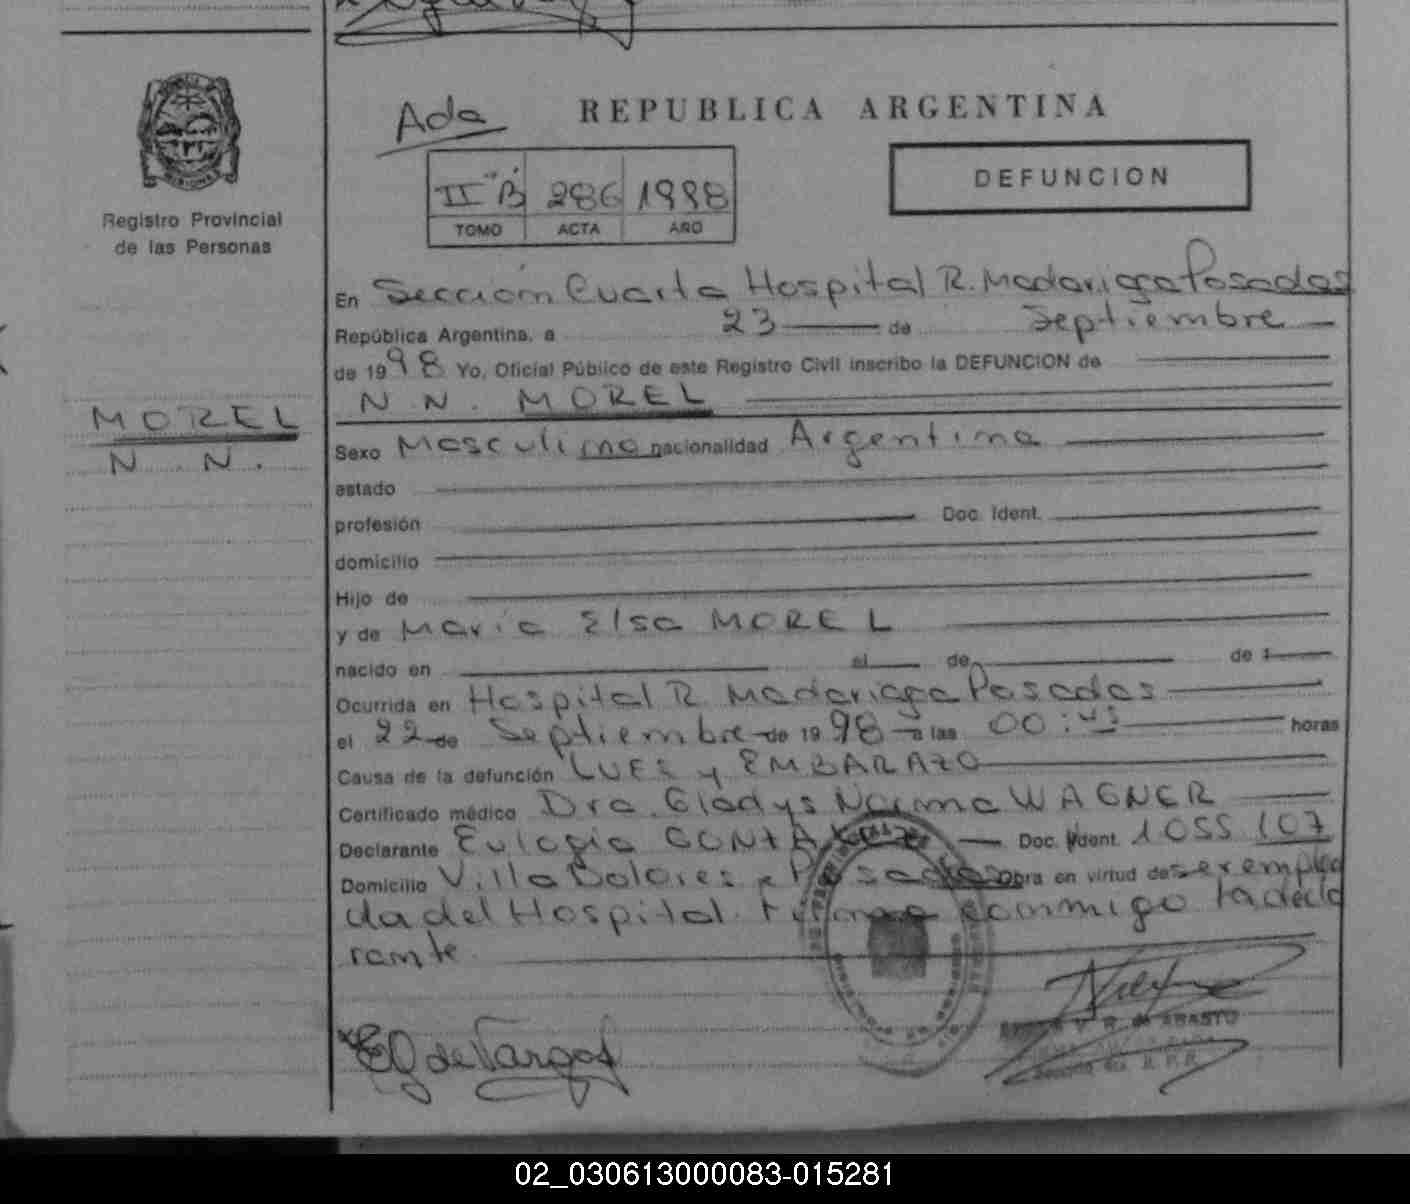 Ada
REPUBLICA ARGENTINA
II "B" 286 1998
TOMO ACTA AÑO
DEFUNCION
Registro Provincial
de las Personas
En Sección Cuarta Hospital R. Madariaga Posadas
República Argentina, a 23 de Septiembre
de 1998 Yo, Oficial Público de este Registro Civil inscribo la DEFUNCION de
N. N. MOREL
MOREL
N. N.
Sexo Masculino nacionalidad Argentina
estado
profesión Doc. Ident.
domicilio
Hijo de
y de Maria Elsa MOREL
nacido en el de de 1
Ocurrida en Hospital R. Madariaga Posadas
el 22 de Septiembre de 1998 a las 00:45 horas
Causa de la defunción LUES y EMBARAZO
Certificado médico Dra. Gladys Norma WAGNER
Declarante Eulogia Doc. Ident. 1055 107
Domicilio Villa Dolores - Posadas obra en virtud de ser emplea
da del Hospital. Firma conmigo la decla
rante
EG de Vargas
de ABASTO
02_030613000083-015281